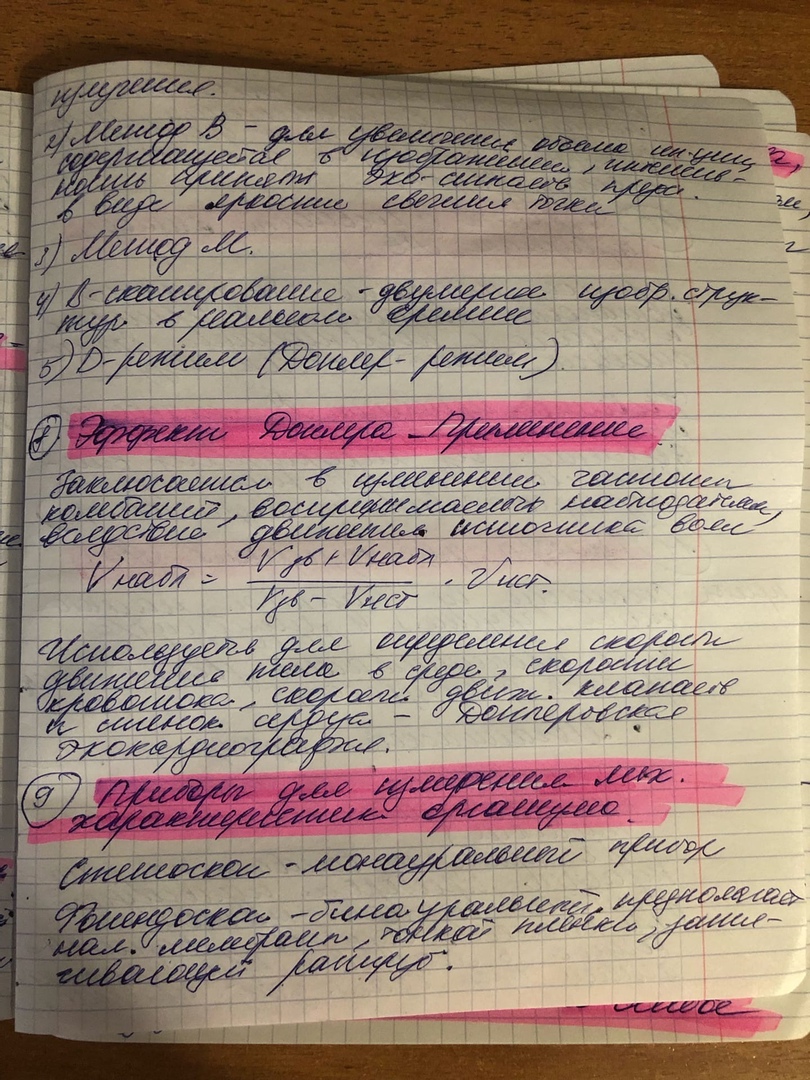 излучения.
2) Метод В – для увеличения объема ин-ции,
содержащегося в изображении, интенсив-
ность принятых эхо-сигналов предс.
в виде яркости свечения точки
3) Метод М.
4) В-сканирование - двумерное изобр. струк-
тур в реальном времени
5) D-режим (Доплер-режим)
8 Эффект Доплера. Применение
Заключается в изменении частоты
колебаний, воспринимаемых наблюдателем,
вследствие движения источника волн
νнабл = (Vзв + Vнабл) / (Vзв - Vист) · νист.
Используется для определения скорости
движения тела в среде, скорости
кровотока, скорости движ. клапанов
и стенок сердца - Доплеровская
эхокардиография.
9 Приборы для измерения мех.
характеристик организма.
Стетоскоп - монауральный прибор
Фонендоскоп - бинауральный, предполагает
нал. мембраны, тонкой плёнки,
раструб.